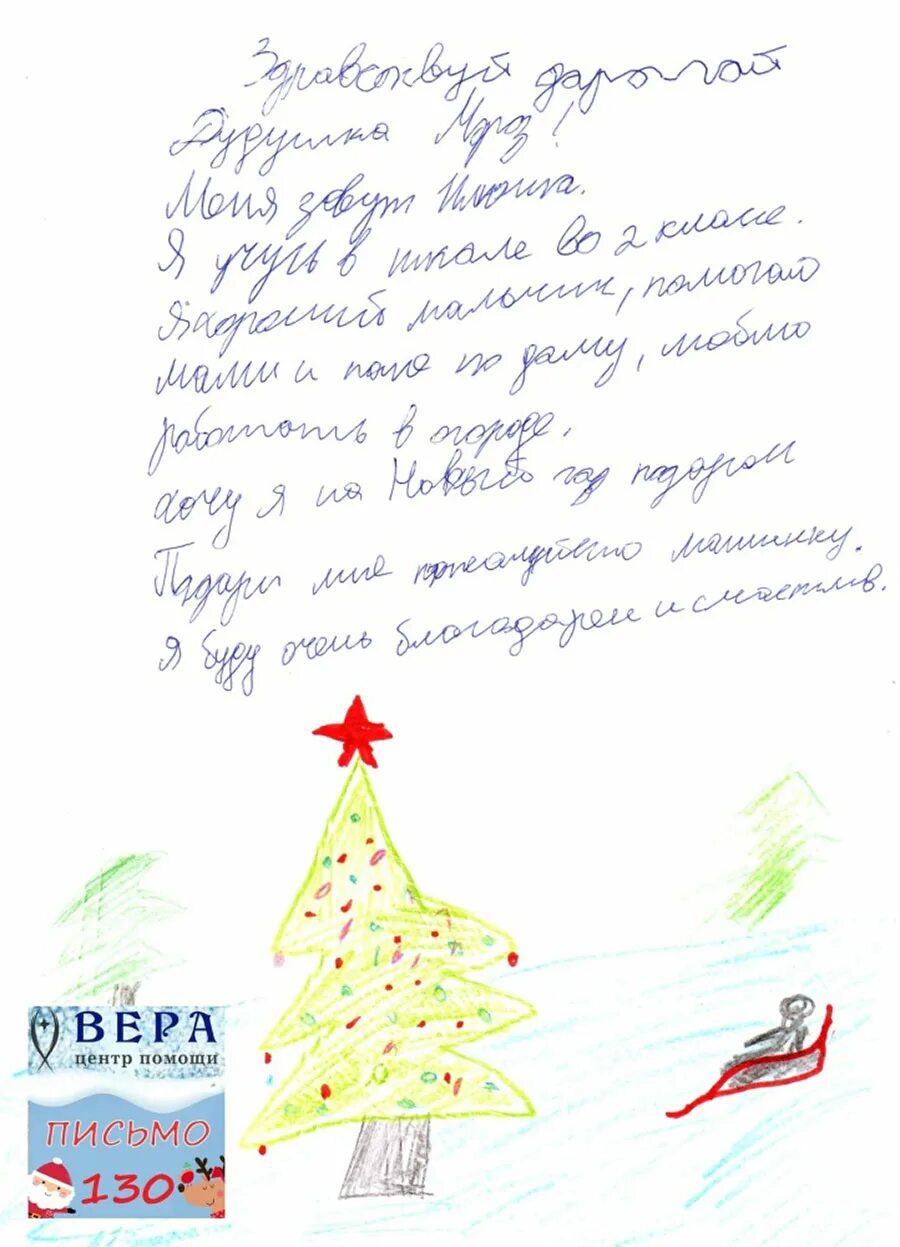 Здравствуй дарогой
Дудушка Мороз!
Меня зовут Илюшка.
Я учусь в шкале во 2 класе.
Я хороший мальчик, помогаю
мами и папе по даму, люблю
работать в огороде.
хочу я на Новый год подарок
Подари мне пожалуйсто машинку.
Я буду очень благодарен и счастлив.
ВЕРА
центр помощи
ПИСЬМО
130